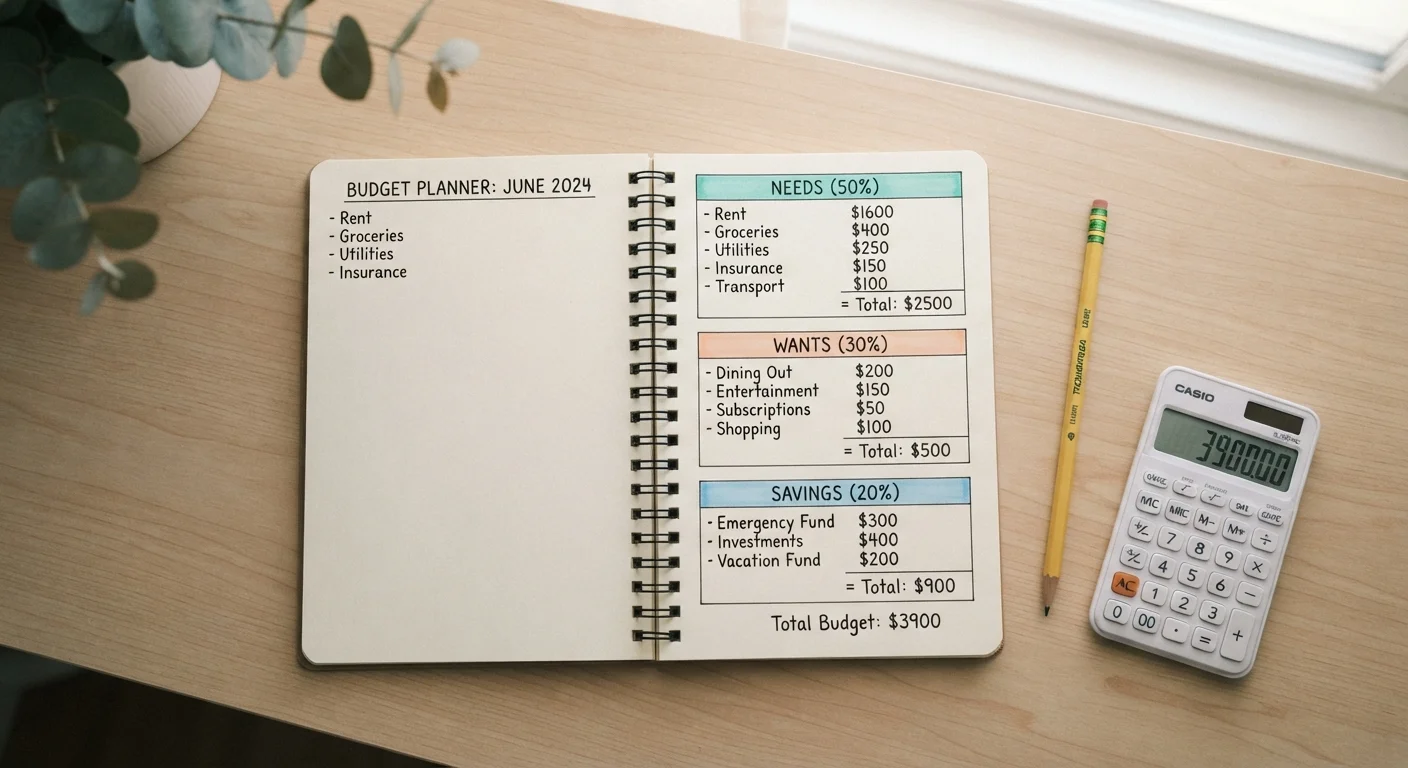 BUDGET PLANNER: JUNE 2024
- Rent
- Groceries
- Utilities
- Insurance
NEEDS (50%)
- Rent $1600
- Groceries $400
- Utilities $250
- Insurance $150
- Transport $100
= Total: $2500
WANTS (30%)
- Dining Out $200
- Entertainment $150
- Subscriptions $50
- Shopping $100
= Total: $500
SAVINGS (20%)
- Emergency Fund $300
- Investments $400
- Vacation Fund $200
= Total: $900
Total Budget: $3900
CASIO
3900.00
MC M-
+/- 7 8 9 ×
4 5 6 −
AC 1 2 3 +
0 00 · =
÷